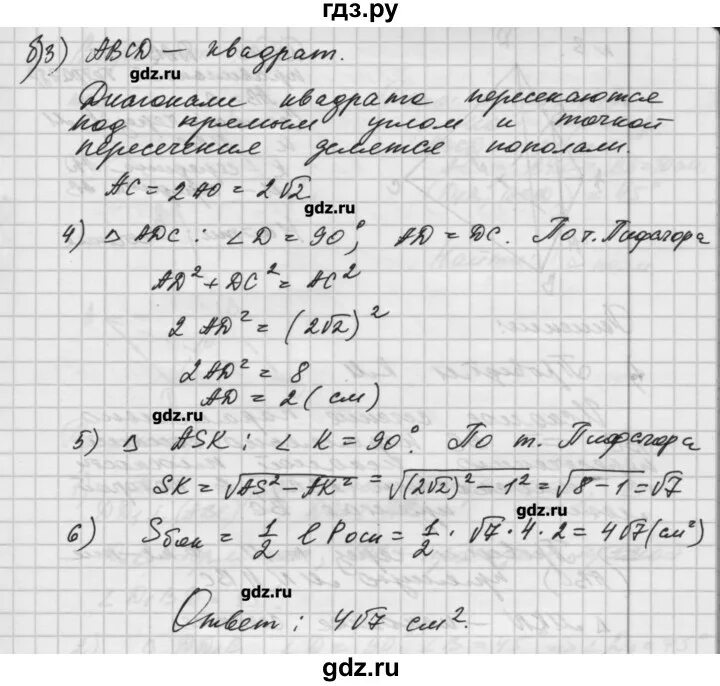 гдз.ру
б)3) ABCD — квадрат.
gdz.ru
Диагонали квадрата пересекаются
под прямым углом и точкой
пересечения делятся пополам.
AC = 2AO = 2√2
gdz.ru
4) △ ADC : ∠D = 90°, AD = DC. По т. Пифагора
AD² + DC² = AC²
2 AD² = (2√2)²
2AD² = 8
AD = 2 (см)
gdz.ru
5) △ ASK : ∠ K = 90°. По т. Пифагора
SK = √AS² − AK² = √(2√2)² − 1² = √8 − 1 = √7
gdz.ru
6) Sбок = 1/2 l Pосн = 1/2 · √7 · 4 · 2 = 4√7 (см²)
gdz.ru
Ответ : 4√7 см².
gdz.ru